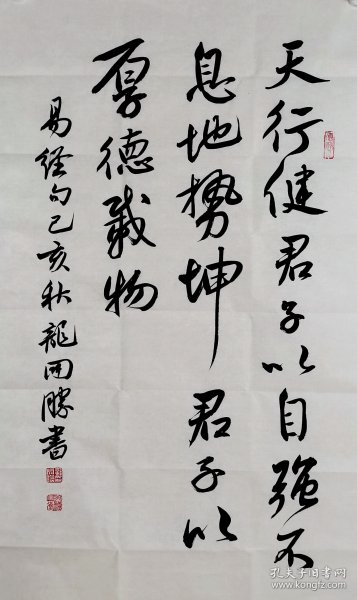 天行健君子以自强不
息地势坤君子以
厚德载物
易经句己亥秋龙田勝书
孔夫子旧书网
www.kongfz.com